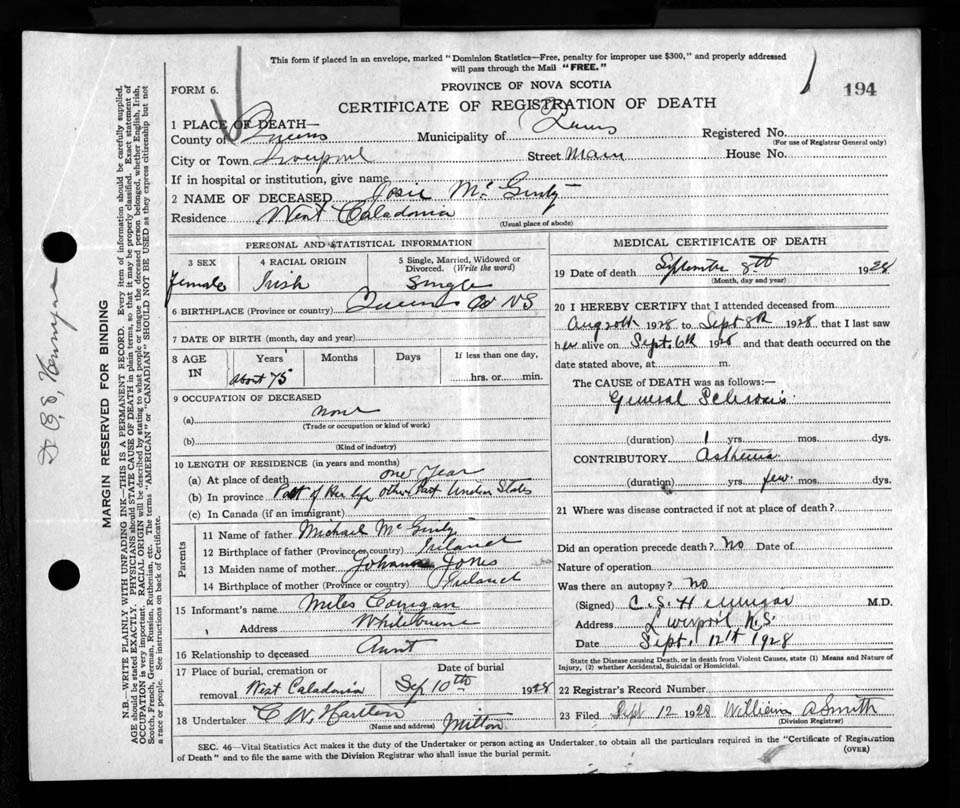 This form if placed in an envelope, marked "Dominion Statistics—Free, penalty for improper use $300," and properly addressed
will pass through the Mail "FREE."
194
FORM 6.
PROVINCE OF NOVA SCOTIA
CERTIFICATE OF REGISTRATION OF DEATH
1 PLACE OF DEATH—
County of Queens Municipality of Queens Registered No.
(For use of Registrar General only)
City or Town Liverpool Street Main House No.
If in hospital or institution, give name
2 NAME OF DECEASED Josie McGinty
Residence West Caladonia
(Usual place of abode)
PERSONAL AND STATISTICAL INFORMATION
3 SEX 4 RACIAL ORIGIN 5 Single, Married, Widowed or Divorced. (Write the word)
Female Irish Single
6 BIRTHPLACE (Province or country) Queens Co NS
7 DATE OF BIRTH (month, day and year)
8 AGE IN Years Months Days If less than one day,
About 75 hrs. or min.
9 OCCUPATION OF DECEASED
(a) none
(Trade or occupation or kind of work)
(b)
(Kind of industry)
10 LENGTH OF RESIDENCE (in years and months)
(a) At place of death one year
(b) In province Part of Her life other Part United States
(c) In Canada (if an immigrant)
Parents
11 Name of father Michael McGinty
12 Birthplace of father (Province or country) Ireland
13 Maiden name of mother Johanna Jones
14 Birthplace of mother (Province or country) Ireland
15 Informant's name Miles Corrigan
Address Whiteburne
16 Relationship to deceased Aunt
17 Place of burial, cremation or removal West Caladonia
Date of burial
Sep 10th 1928
18 Undertaker C W Harlten Milton
(Name and address)
MEDICAL CERTIFICATE OF DEATH
19 Date of death September 8th 1928
(Month, day and year)
20 I HEREBY CERTIFY that I attended deceased from
Aug 20th 1928 to Sept 8th 1928 that I last saw
her alive on Sept. 6th 1928 and that death occurred on the
date stated above, at m.
The CAUSE of DEATH was as follows:—
General Sclerosis
(duration) 1 yrs. mos. dys.
CONTRIBUTORY Asthenia
(duration) yrs. few mos. dys.
21 Where was disease contracted if not at place of death?
Did an operation precede death? No Date of
Nature of operation
Was there an autopsy? No
(Signed) C. S. Hennigar M.D.
Address Liverpool N.S.
Date Sept. 12th 1928
State the Disease causing Death, or in death from Violent Causes, state (1) Means and Nature of
Injury, (2) whether Accidental, Suicidal or Homicidal.
22 Registrar's Record Number
23 Filed Sept 12 1928 William A Smith
(Division Registrar)
SEC. 46—Vital Statistics Act makes it the duty of the Undertaker or person acting as Undertaker to obtain all the particulars required in the "Certificate of Registration
of Death" and to file the same with the Division Registrar who shall issue the burial permit.
(OVER)
MARGIN RESERVED FOR BINDING
N.B.—WRITE PLAINLY WITH UNFADING INK—THIS IS A PERMANENT RECORD. Every item of information should be carefully supplied.
AGE should be stated EXACTLY. PHYSICIANS should STATE CAUSE OF DEATH in plain terms, so that it may be properly classified. Exact statement of
OCCUPATION is very important. RACIAL ORIGIN will be described by stating to what people or tongue the deceased person belonged, whether English, Irish,
Scotch, French, German, Russian, Ruthenian, etc. The terms "AMERICAN" or "CANADIAN" SHOULD NOT BE USED as they express citizenship but not
a race or people. See instructions on back of Certificate.